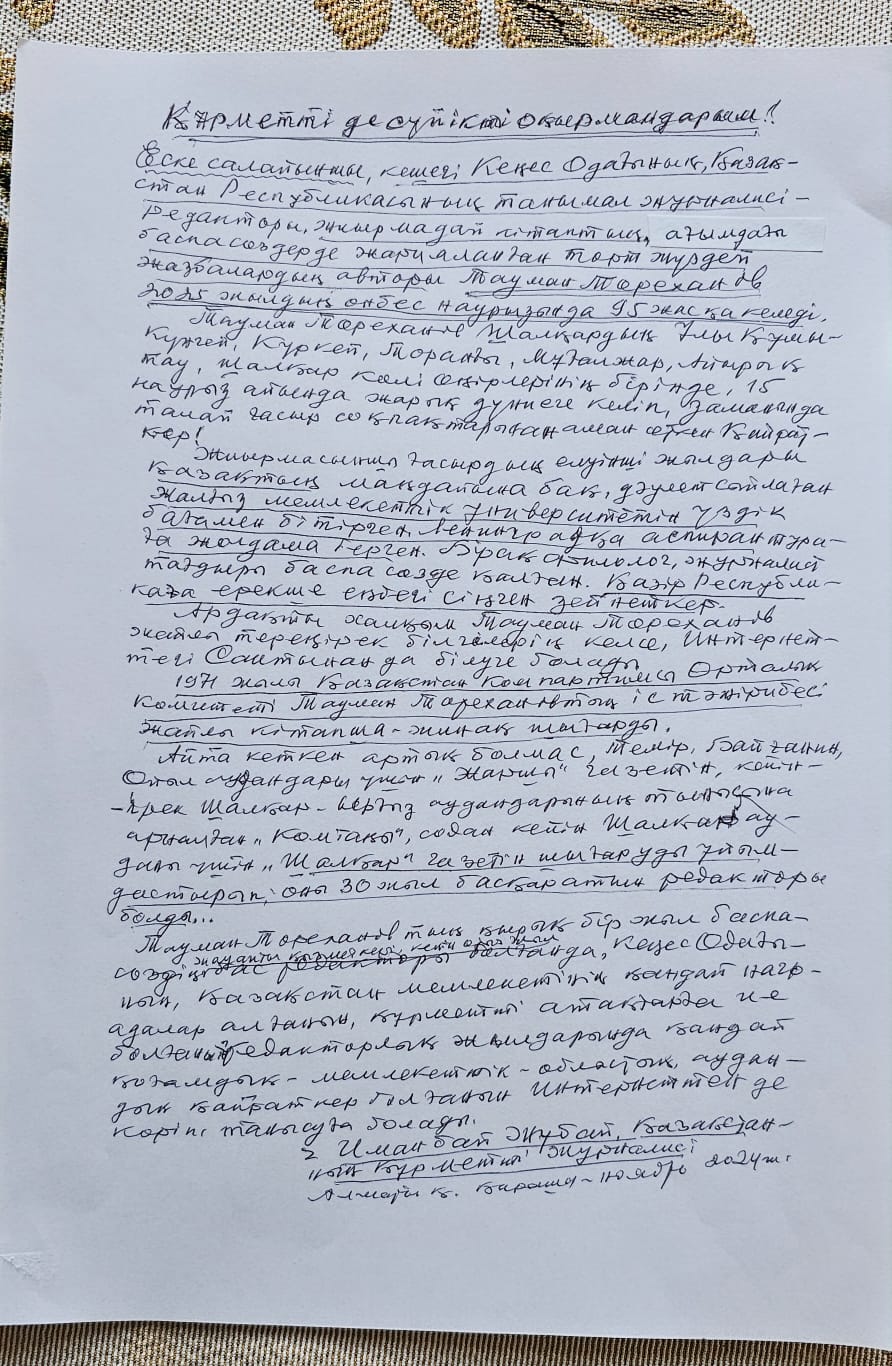 Құрметті де сүйікті оқырмандарым!
Еске салайыншы, кешегі Кеңес Одағының, Қазақ-
стан Республикасының танымал журналисі-
редакторы, жиырмадай кітаптың, ағымдағы
баспасөздерде жарияланған төрт жүздей
жазбалардың авторы Тауман Төреханов
2025 жылдың онбес наурызында 95 жасқа келеді.
Тауман Төреханов Шалқардың Ұлы Құмы-
күнгей, Күркей, Торанғы, Мұғалжар, Айырық
тау, Шалқар көлі өңірлерінің бірінде, 15
наурыз айында жарық дүниеге келіп, заманында
талай ғасыр соқпақтарынан аман өткен Қайрат-
кер!
Жиырмасыншы ғасырдың елуінші жылдары
қазақтың маңдайына бақ, дәулет сыйлаған
жалғыз мемлекеттік университетін үздік
бағамен бітірген. Ленинградқа аспирантура-
ға жолдама берген. Бірақ филолог, журналист
тағдыры баспа сөзде қалған. Қазір Республи-
каға ерекше еңбегі сіңген зейнеткер.
Ардақты халқым Тауман Төреханов
жайлы тереңірек білгілерің келсе, Интернет-
тегі Сайтынан да білуге болады
1971 жылы Қазақстан Компартиясы Орталық
Комитеті Тауман Төрехановтың іс тәжірибесі
жайлы кітапша-жинақ шығарды.
Айта кеткен артық болмас, Темір, Байғанин,
Ойыл аудандары үшін „Жаршы" газетін, кейін-
-ірек Шалқар-Ырғыз аудандарының тынысына
арналған „Комтаңы", содан кейін Шалқар ау-
даны үшін „Шалқар" газетін шығаруды ұйым-
дастырып, оны 30 жыл басқаратын редакторы
болды...
Тауман Төрехановтың қырық бір жыл баспа-
сөздің жауапты қызметкері, кейін отыз жыл
бас редакторы болғанда, Кеңес Одағы-
ның, Қазақстан мемлекетінің қандай нагр-
адалар алғанын, құрметті атақтарға ие
болғанын, редакторлық жылдарында қандай
қоғамдық-мемлекеттік-облыстық, аудан-
дық қайраткер болғанын Интернеттен де
көріп, танысуға болады.
Иманбай Жұбай, Қазақстан-
ның құрметті журналисі
Алматы қ. Қараша-ноябрь 2024ж.